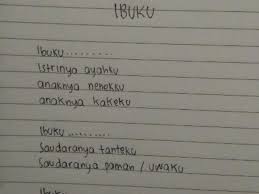 IBUKU
Ibuku.........
Istrinya ayahku
anaknya nenekku
anaknya kakeku
Ibuku.........
Saudaranya tanteku
Saudaranya paman / uwaku
Ibuku